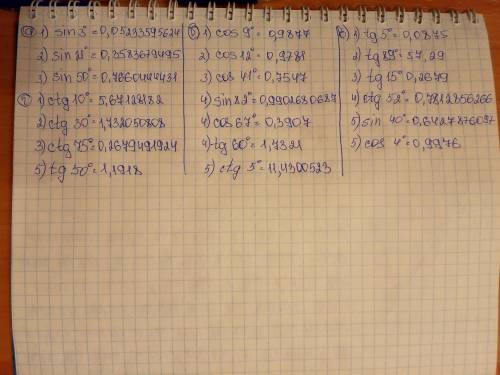 а) 1) sin 3° = 0,05233595624
2) sin 21° = 0,3583679495
3) sin 50° = 0,7660444431
г) 1) ctg 10° = 5,67128182
2) ctg 30° = 1,732050808
3) ctg 75° = 0,2679491924
5) tg 50° = 1,1918
б) 1) cos 9° = 0,9877
2) cos 12° = 0,9781
3) cos 41° = 0,7547
4) sin 82° = 0,9902680687
4) cos 67° = 0,3907
4) tg 60° = 1,7321
5) ctg 5° = 11,4300523
в) 1) tg 5° = 0,0875
2) tg 89° = 57,29
3) tg 15° 0,2679
4) ctg 52° = 0,7812856266
5) sin 40° = 0,6427876097
5) cos 4° = 0,9976